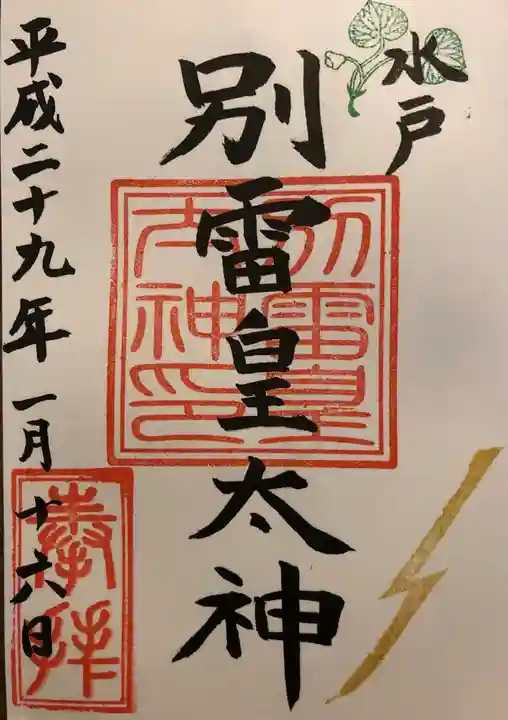 水戸
別雷皇太神
別雷皇
太神印
平成二十九年一月十六日
奉拝